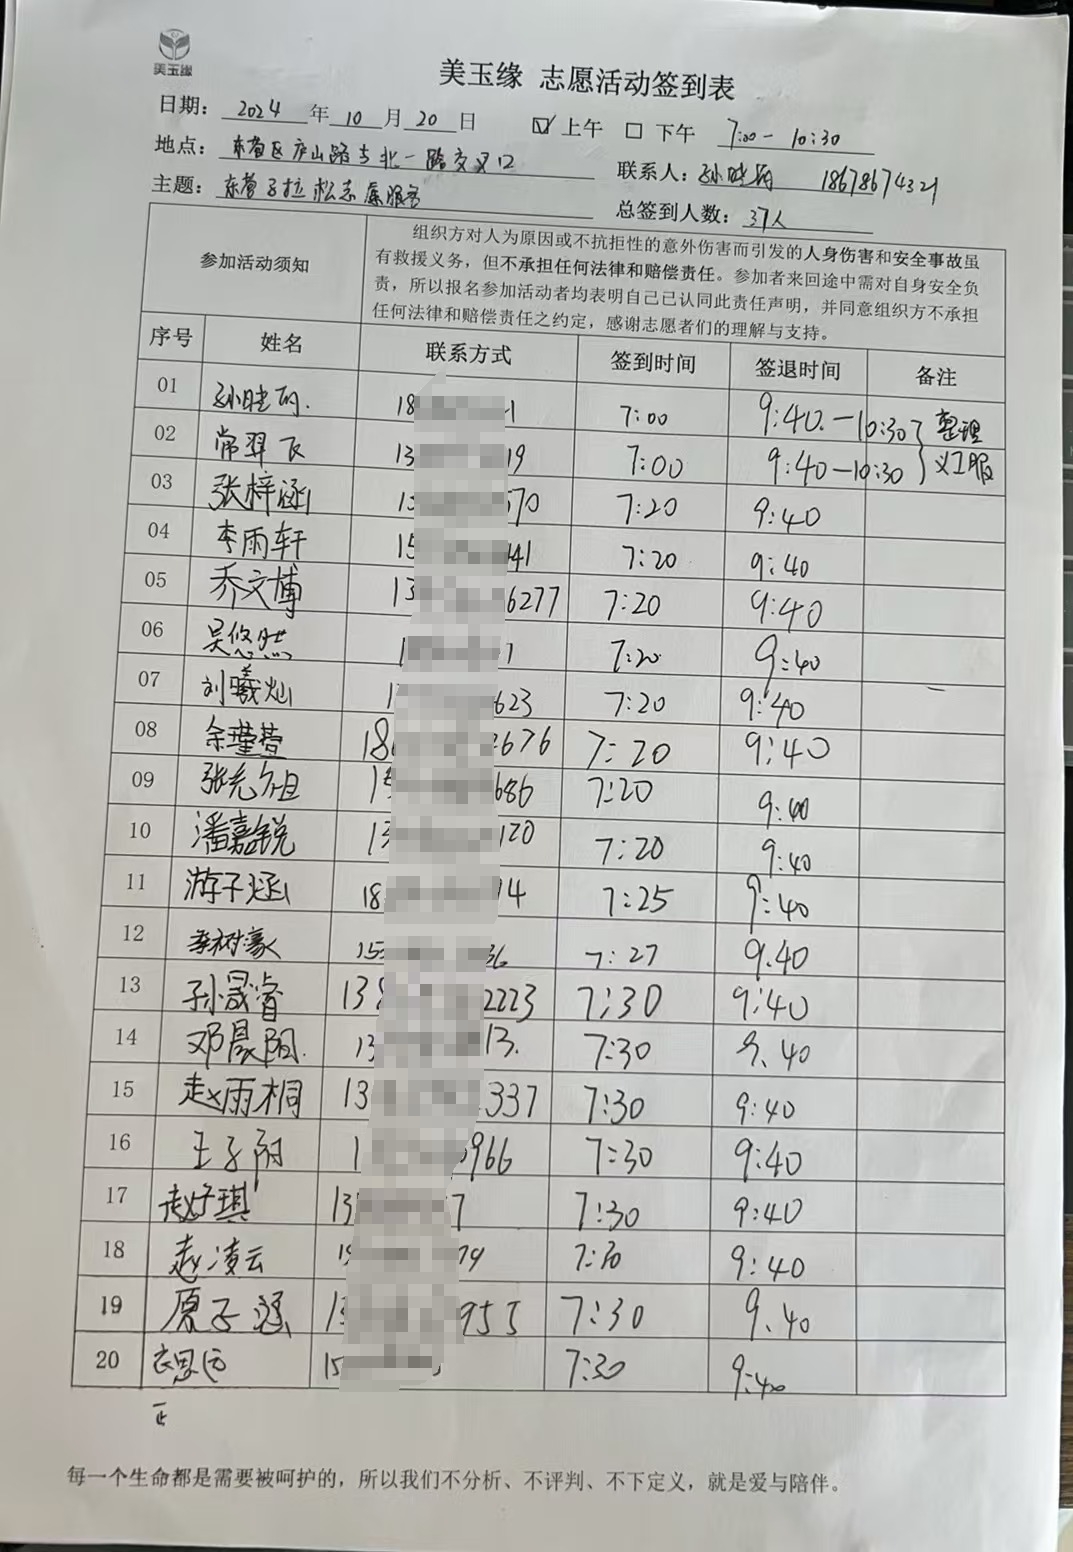 美玉缘
美玉缘 志愿活动签到表
日期： 2024 年 10 月 20 日 ☑ 上午 □ 下午 7:00-10:30
地点： 东营区庐山路与北一路交叉口
联系人： 孙 18678674321
主题： 东营马拉松志愿服务
总签到人数： 37人
参加活动须知
组织方对人为原因或不抗拒性的意外伤害而引发的人身伤害和安全事故虽
有救援义务，但不承担任何法律和赔偿责任。参加者来回途中需对自身安全负
责，所以报名参加活动者均表明自己已认同此责任声明，并同意组织方不承担
任何法律和赔偿责任之约定，感谢志愿者们的理解与支持。
序号 姓名 联系方式 签到时间 签退时间 备注
01 孙 18 1 7:00 9:40.-10:30 整理
02 常羿飞 13 19 7:00 9:40-10:30 义工服
03 张梓涵 13 570 7:20 9:40
04 李雨轩 15 441 7:20 9:40
05 乔文博 13 6277 7:20 9:40
06 吴悠然 1 1 7:20 9:40
07 刘曦灿 1 623 7:20 9:40
08 余瑾萱 186 2676 7:20 9:40
09 张 15 686 7:20 9:40
10 潘嘉锐 13 120 7:20 9:40
11 游子涵 18 94 7:25 9:40
12 李树豪 155 36 7:27 9.40
13 孙晟睿 138 2223 7:30 9:40
14 邓晨阳. 13 13. 7:30 9.40
15 赵雨桐 13 337 7:30 9:40
16 王子 1 966 7:30 9:40
17 赵子琪 13 7 7:30 9:40
18 赵凌云 79 7:30 9:40
19 原子涵 13 955 7:30 9.40
20 15 7:30 9:40
正
每一个生命都是需要被呵护的，所以我们不分析、不评判、不下定义，就是爱与陪伴。